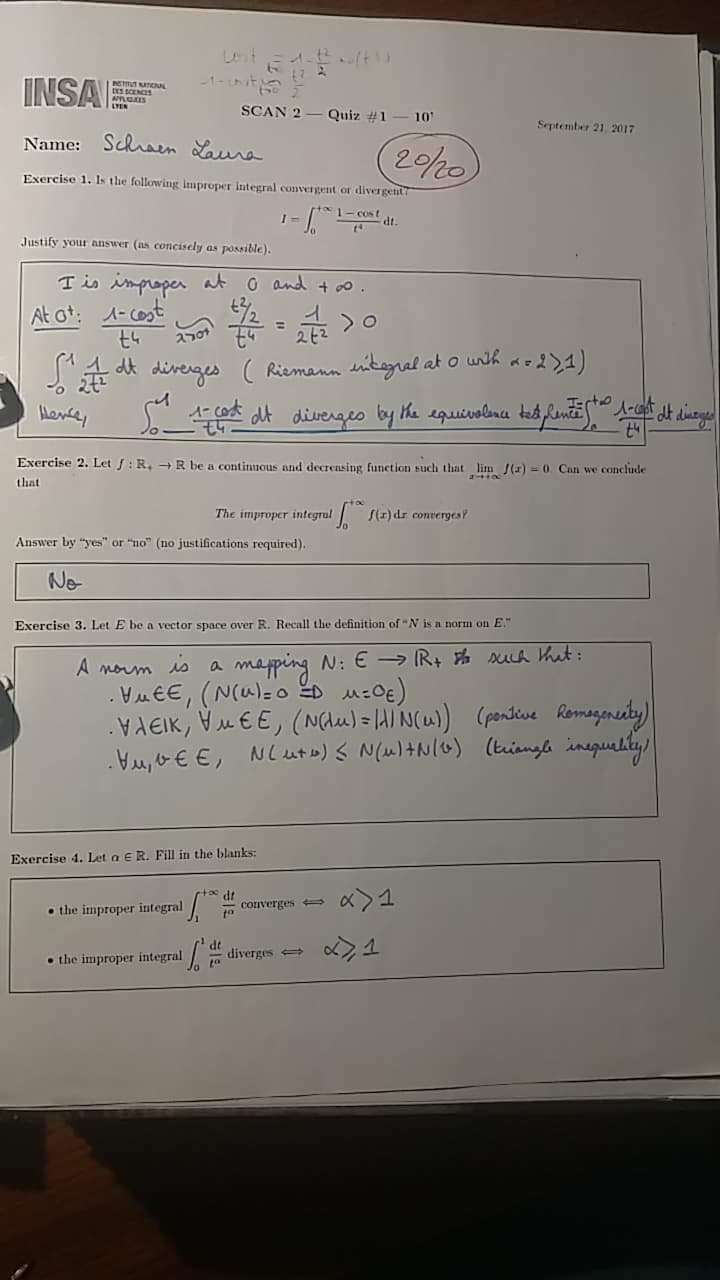 cost = 1 - t²/2 + o(t³)
t→0
1-cost ~ t²/2
t→0
INSA INSTITUT NATIONAL DES SCIENCES APPLIQUÉES LYON
SCAN 2 — Quiz #1 — 10'
September 21, 2017
Name: Schraen Laura
20/20
Exercise 1. Is the following improper integral convergent or divergent?
I = ∫₀^{+∞} (1 − cos t)/t⁴ dt.
Justify your answer (as concisely as possible).
I is improper at 0 and +∞.
At 0⁺: (1-cost)/t⁴ ~ (t²/2)/t⁴ = 1/(2t²) > 0
∫₀¹ 1/(2t²) dt diverges ( Riemann integral at 0 with α = 2 ≥ 1)
Hence, ∫₀¹ (1-cost)/t⁴ dt diverges by the equivalence test, hence I = ∫₀^{+∞} (1-cost)/t⁴ dt diverges
Exercise 2. Let f : ℝ₊ → ℝ be a continuous and decreasing function such that lim_{x→+∞} f(x) = 0. Can we conclude
that
The improper integral ∫₀^{+∞} f(x) dx converges?
Answer by “yes” or “no” (no justifications required).
No
Exercise 3. Let E be a vector space over ℝ. Recall the definition of “N is a norm on E.”
A norm is a mapping N: E → ℝ₊ such that:
. ∀u∈E, (N(u)=0 ⇒ u=0_E)
. ∀λ∈𝕂, ∀u∈E, (N(λu)=|λ| N(u)) (positive homogeneity)
. ∀u,v∈E, N(u+v) ≤ N(u)+N(v) (triangle inequality)
Exercise 4. Let α ∈ ℝ. Fill in the blanks:
• the improper integral ∫₁^{+∞} dt/t^α converges ⟺ α>1
• the improper integral ∫₀¹ dt/t^α diverges ⟺ α⩾1